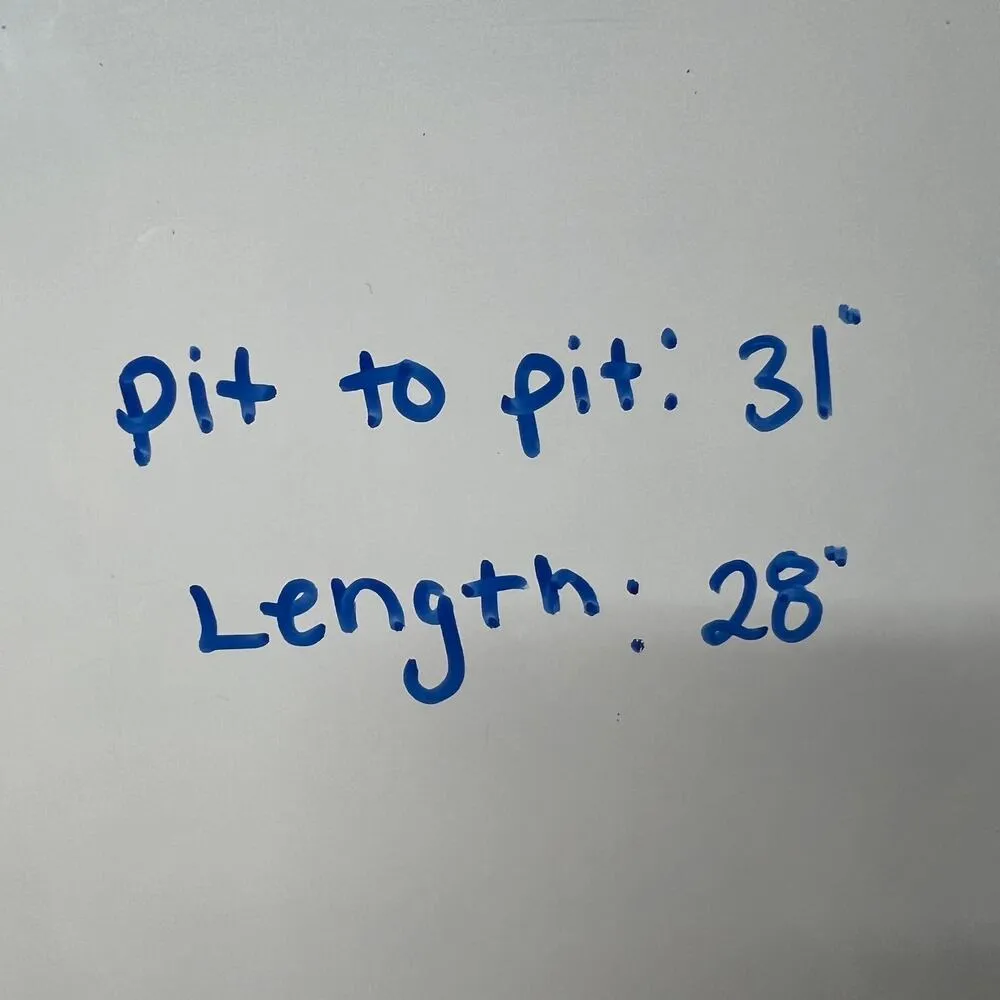 pit to pit: 31"
Length: 28"